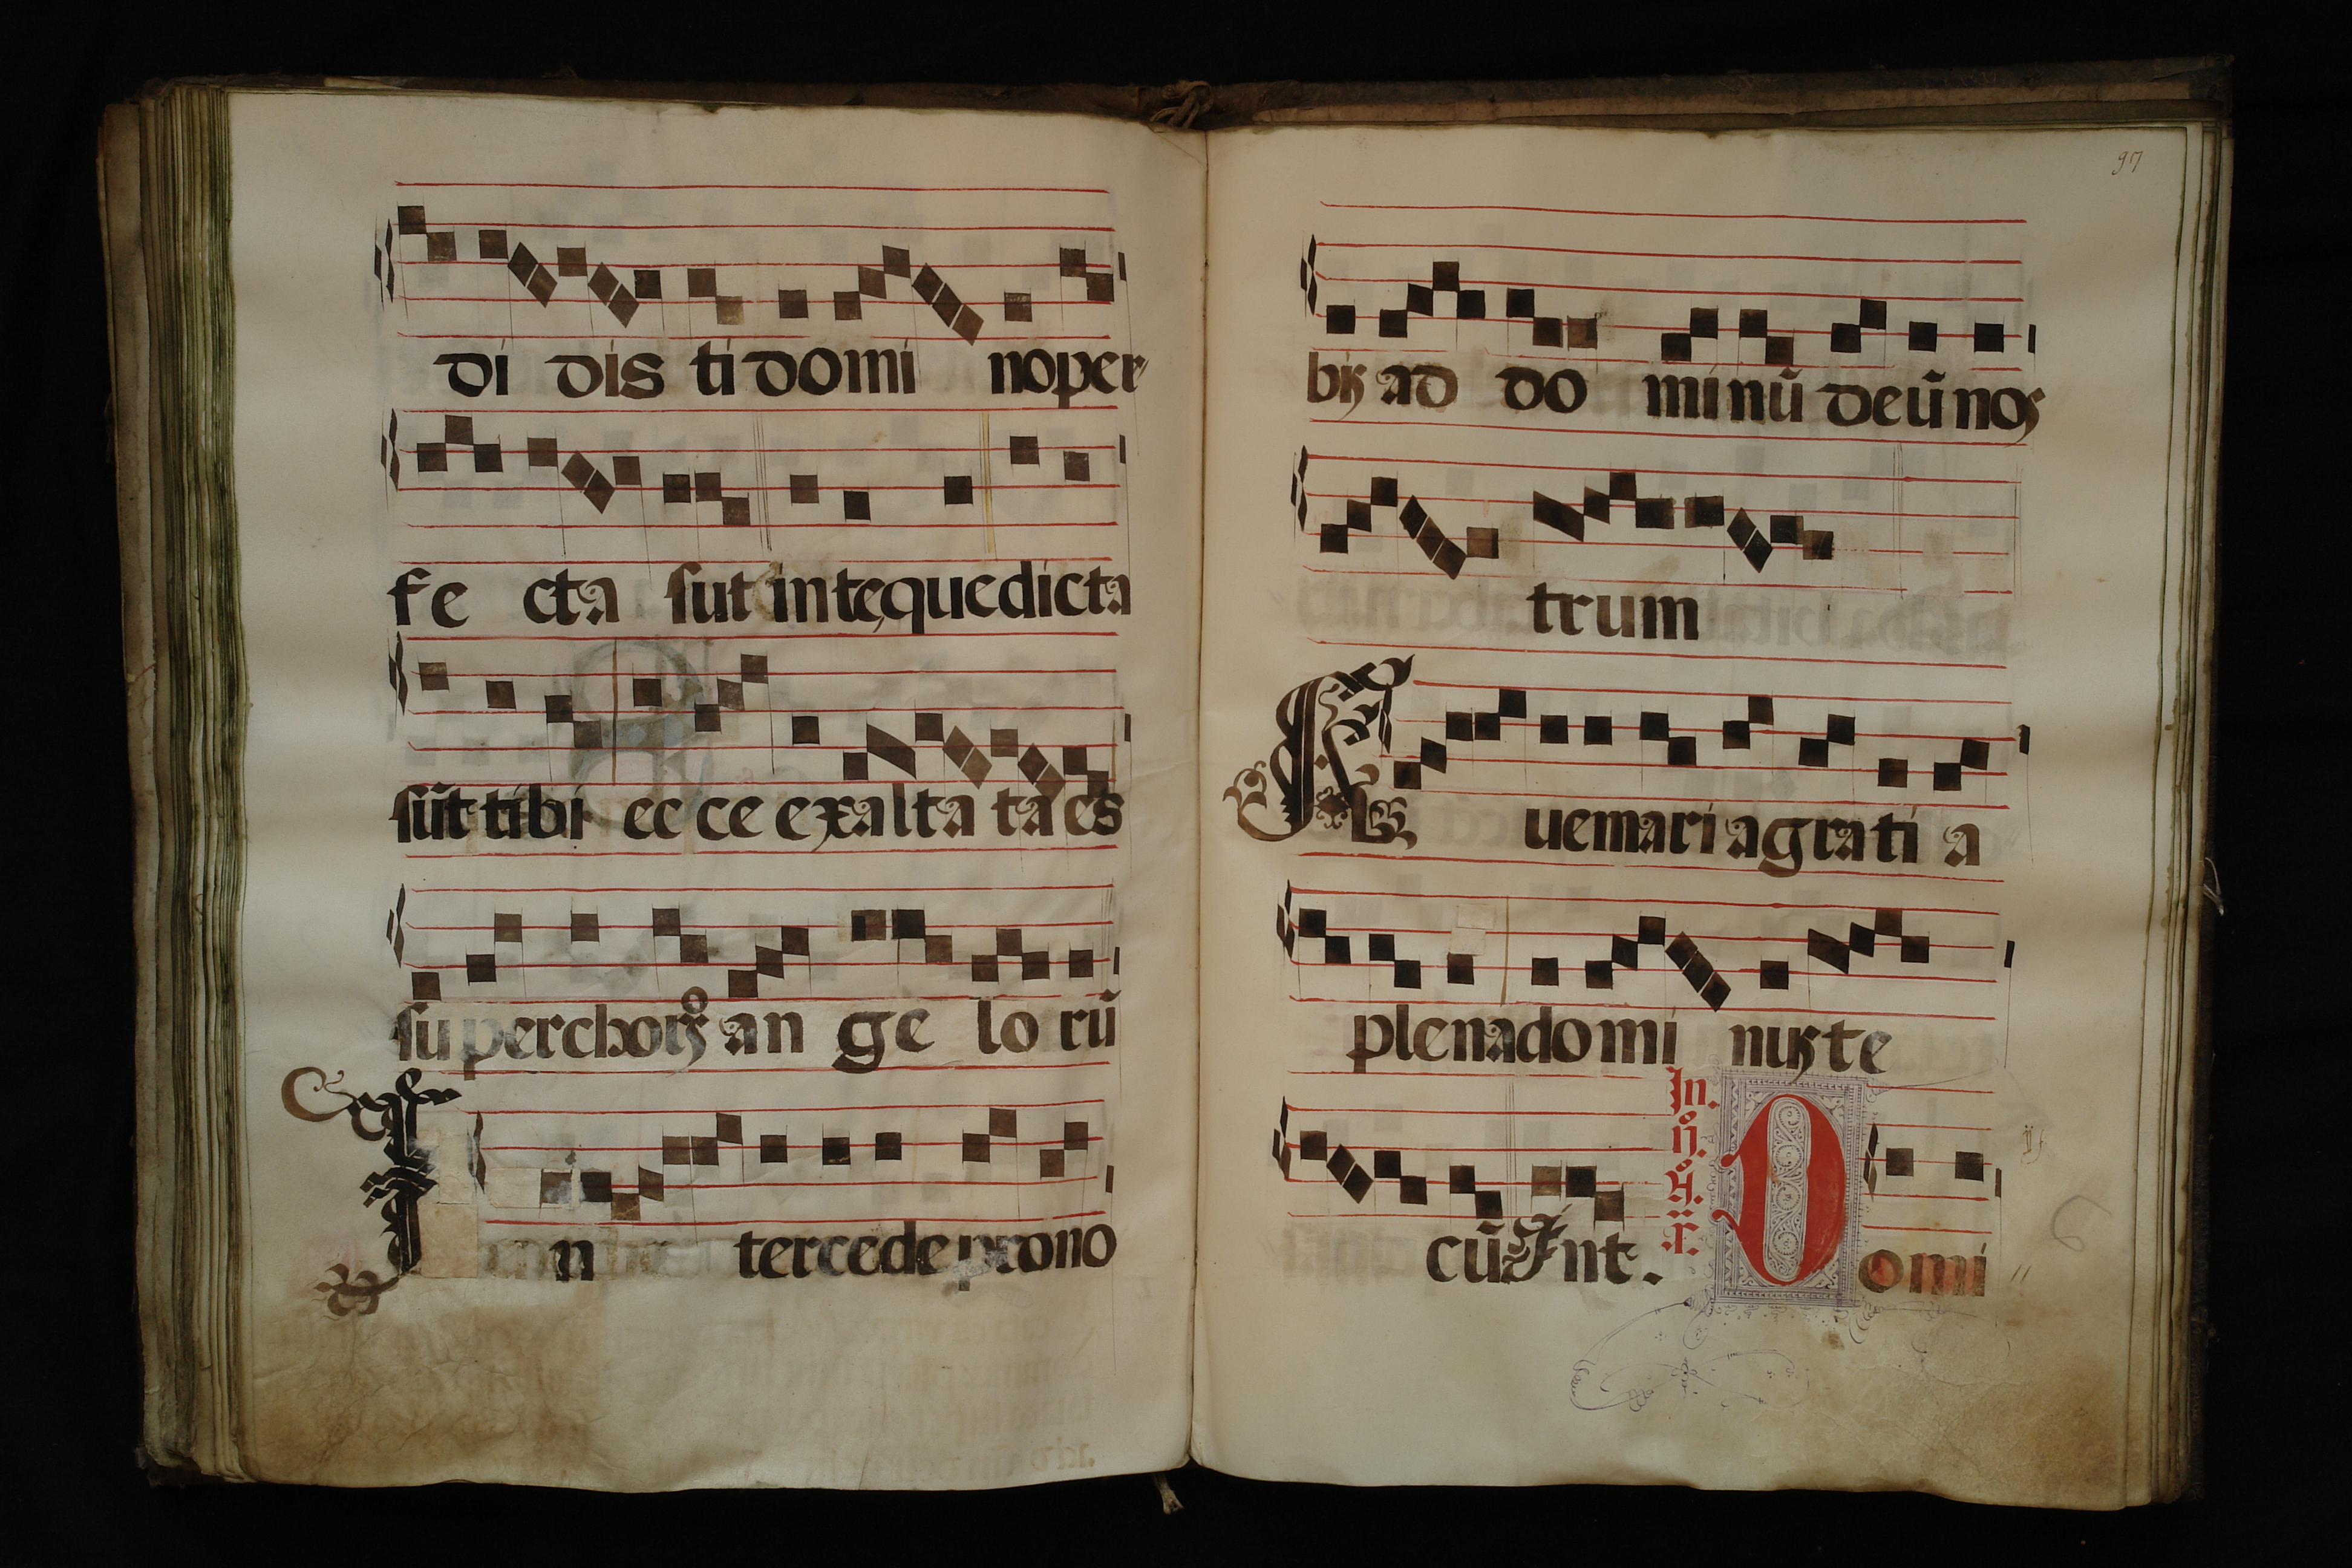 di dis ti domi no per
fe cta sut in te que dicta
sūt tibi ec ce exalta ta es
su per choꝝ an ge lo rū
In tercede pro no
97
bis ad do minū deū nos
trum
Aue maria grati a
plena domi nus te
cū Int.
In.
Domi